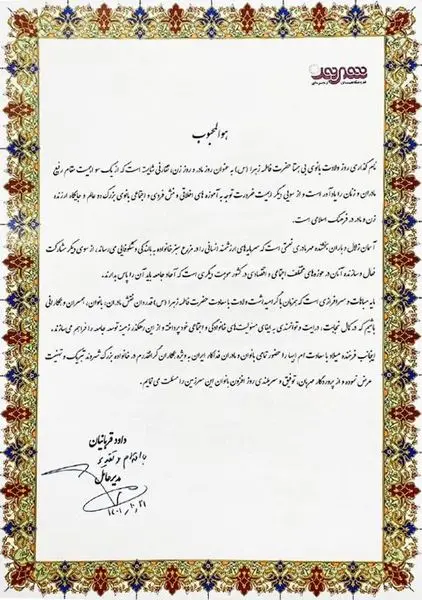 شهروند
هوالمحبوب
نام گذاری روز ولادت بانوی بی همتا حضرت فاطمه زهرا (س) به عنوان روز مادر و روز زن، تقارنی شایسته است که از یک سو اهمیت مقام رفیع
مادران و زنان را یادآور است و از سویی دیگر اهمیت ضرورت توجه به آموزه های اخلاقی و منش فردی و اجتماعی بانوی بزرگ دو عالم و جایگاه ارزنده
زن و مادر در فرهنگ اسلامی است.
آسمان زلال و باران بخشنده مهر مادری نعمتی است که سرمایه‌های ارزشمند انسانی را در مزرع سبز خانواده به بالندگی و شکوفایی می رساند. از سوی دیگر مشارکت
فعال و سازنده آنان در حوزه های مختلف اجتماعی و اقتصادی در کشور موهبت دیگری است که آحاد جامعه باید آن را پاس بدارند.
مایه مباهات و سرافرازی است که همزمان با گرامیداشت ولادت با سعادت حضرت فاطمه زهرا (س) قدردان نقش مادران، بانوان، همسران و همکارانی
باشیم که در کمال نجابت، درایت و توانمندی به ایفای مسئولیت های خانوادگی و اجتماعی خود پرداخته و از این رهگذر زمینه توسعه جامعه را فراهم می سازند.
اینجانب فرخنده میلاد با سعادت ام ابیها را حضور تمامی بانوان و مادران فداکار ایران به ویژه همکاران گرانقدرم در خانواده بزرگ شهروند تبریک و تهنیت
عرض نموده و از پروردگار مهربان، توفیق و سربلندی روز افزون بانوان این سرزمین را مسئلت می نمایم.
داود قربانیان
با احترام و تقدیر
مدیرعامل